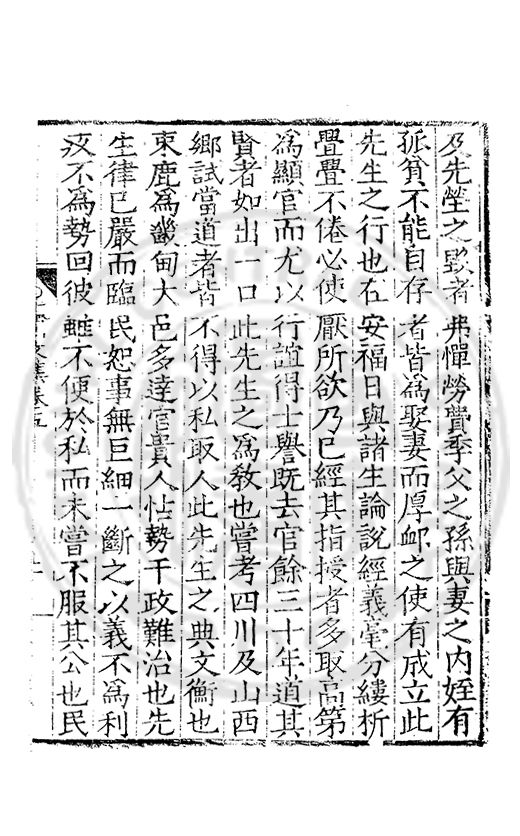 及先塋之毀者弗憚勞費季父之孫與妻之內姪有
孤貧不能自存者皆為娶妻而厚卹之使有成立此
先生之行也在安福日與諸生論說經義毫分縷析
亹亹不倦必使厭所欲乃已經其指授者多取高第
為顯官而尤以行誼得士譽既去官餘三十年道其
賢者如出一口此先生之為敎也嘗考四川及山西
鄉試當道者皆不得以私取人此先生之典文衡也
東鹿為畿甸大邑多達官貴人怙勢干政難治也先
生律己嚴而臨民恕事無巨細一斷之以義不為利
疚不為勢回彼雖不便於私而未嘗不服其公也民
集卷五